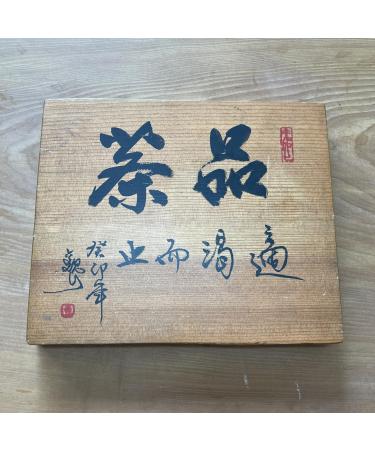 品茶
適渴而止
癸卯年